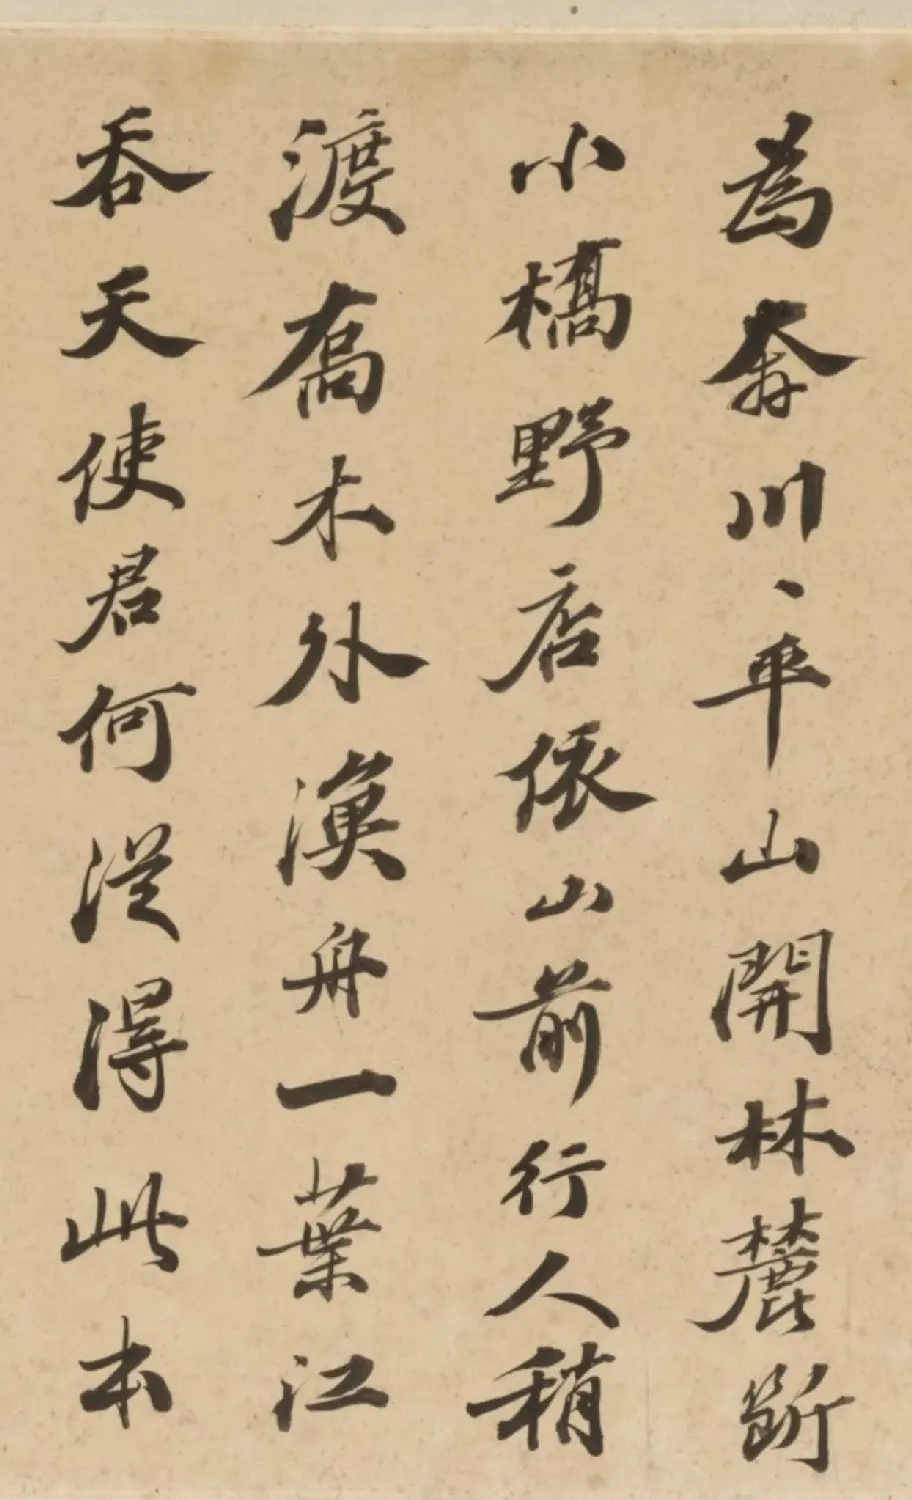 為奔川、平山開林麓斷
小橋野店依山前行人稍
渡喬木外漁舟一葉江
吞天使君何從得此本